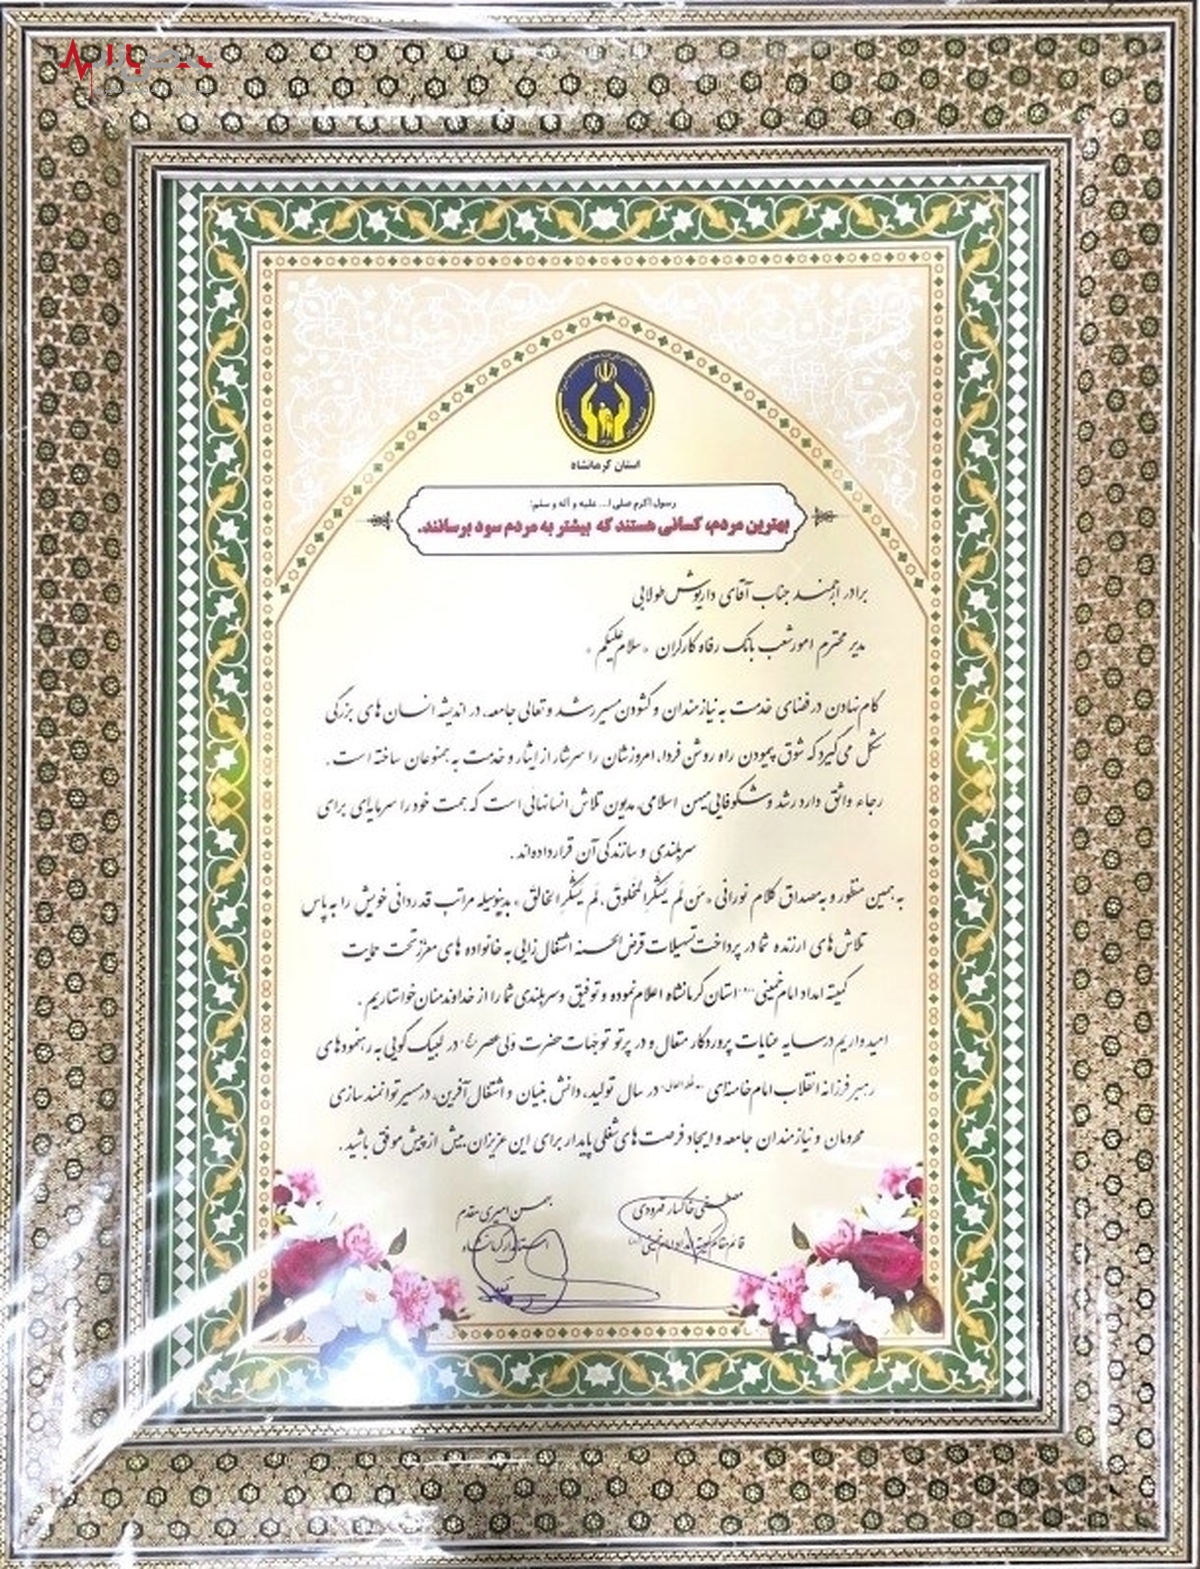 استان کرمانشاه
رسول اکرم صلی ا... علیه و آله و سلم:
بهترین مردم، کسانی هستند که بیشتر به مردم سود برسانند.
برادر ارجمند جناب آقای داریوش طولابی
مدیر محترم امور شعب بانک رفاه کارگران « سلام علیکم »
گام نهادن در فضای خدمت به نیازمندان و گشودن مسیر رشد و تعالی جامعه، در اندیشه انسان های بزرگی
شکل می گیرد که شوق پیمودن راه روشن فردا، امروزشان را سرشار از ایثار و خدمت به همنوعان ساخته است .
رجاء واثق دارد رشد و شکوفایی میهن اسلامی، مدیون تلاش انسانهایی است که همت خود را سرمایه‌ای برای
سربلندی و سازندگی آن قرار داده اند .
به همین منظور و به مصداق کلام نورانی « مَن لَم یَشکُرِ المَخلوقَ ، لَم یَشکُرِ الخالِقَ » بدینوسیله مراتب قدردانی خویش را به پاس
تلاش های ارزنده شما در پرداخت تسهیلات قرض الحسنه اشتغال زایی به خانواده های معزز تحت حمایت
کمیته امداد امام خمینی استان کرمانشاه اعلام نموده و توفیق و سربلندی شما را از خداوند منان خواستاریم .
امید واریم در سایه عنایات پروردگار متعال و در پرتو توجهات حضرت ولی عصر (عج) در لبیک گویی به رهنمودهای
رهبر فرزانه انقلاب امام خامنه ای در سال تولید، دانش بنیان و اشتغال آفرین، در مسیر توانمند سازی
محرومان و نیازمندان جامعه و ایجاد فرصت های شغلی پایدار برای این عزیزان بیش از پیش موفق باشید .
مصطفی خاکسار قهرودی
قائم مقام کمیته امداد امام خمینی
بهمن امیری مقدم
استاندار کرمانشاه